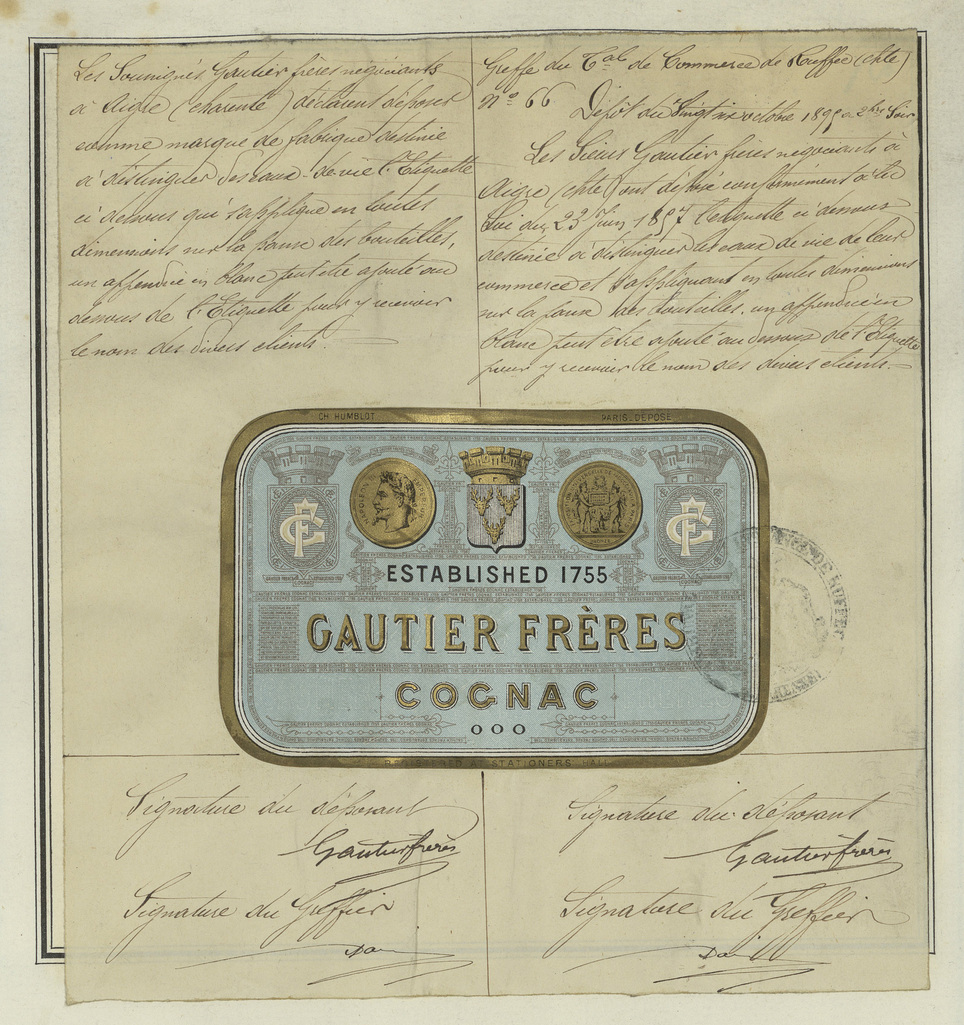 Les Soussignés Gautier frères négociants
à Aigre (charente) déclarent déposer
comme marque de fabrique destinée
à distinguer ses eaux-de-vie l'Etiquette
ci dessous qui s'applique en toutes
dimensions sur la panse des bouteilles,
un appendice en blanc peut être ajouté au
dessous de l'Etiquette pour y recevoir
le nom des divers clients.
Greffe du Tal de Commerce de Ruffec (chte)
No 66 Dépôt du Vingt six octobre 189 a 2hrs Soir
Les Sieurs Gautier frères négociants à
Aigre (chte) ont déposé conformément à la
Loi du 23 Juin 1857 l'étiquette ci dessous
destinée à distinguer les eaux de vie de leur
commerce et s'appliquant en toutes dimensions
sur la panse des bouteilles. un appendice en
blanc peut être ajouté au dessous de l'Etiquette
pour y recevoir le nom des divers clients.
CH. HUMBLOT
PARIS. DÉPOSÉ
NAPOLEON III EMPEREUR
GF
GF
ESTABLISHED 1755
GAUTIER FRÈRES
COGNAC
OOO
REGISTERED AT STATIONERS HALL
DE RUFFEC
Signature du déposant
Gautier frères
Signature du Greffier
Signature du déposant
Gautier frères
Signature du Greffier